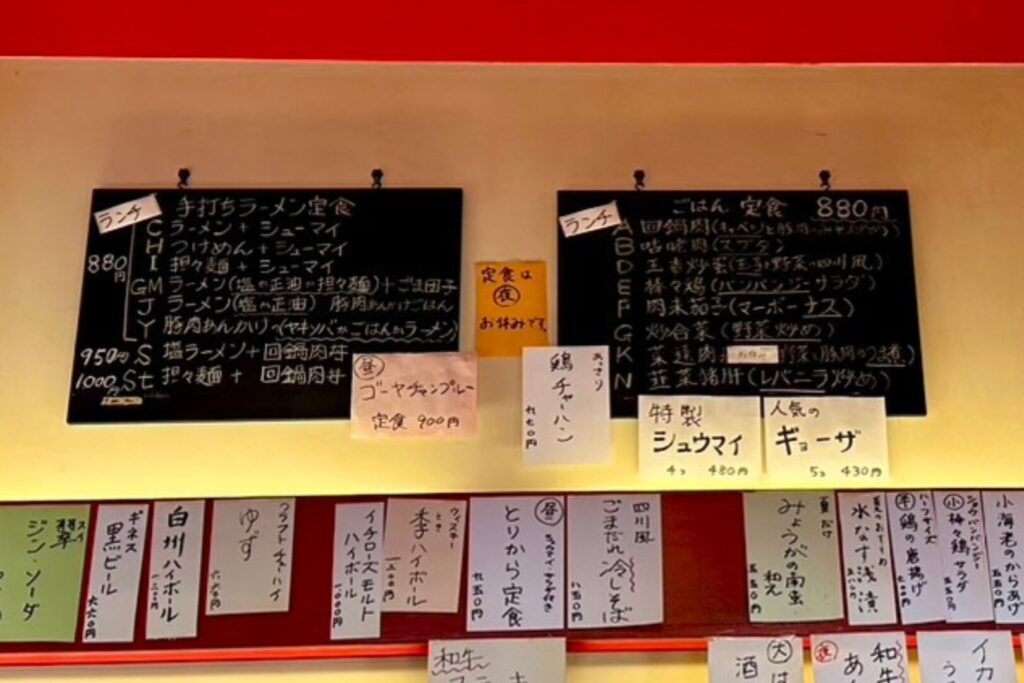 ランチ
手打ちラーメン定食
C ラーメン + シューマイ
H つけめん + シューマイ
880円
I 担々麺 + シューマイ
GM ラーメン(塩or正油or担々麺)+ごま団子
J ラーメン(塩or正油) 豚肉あんかけごはん
Y 豚肉あんかけ
950円 S 塩ラーメン+回鍋肉丼
1000円 St 担々麺 + 回鍋肉丼
昼
ゴーヤチャンプルー
定食 900円
定食は
夜
お休みです。
ランチ
ごはん 定食 880円
A 回鍋肉(キャベツと豚肉のみそ炒め)
B 咕咾肉(スブタ)
D 玉子と野菜の四川風)
E 棒々鶏(バンバンジーサラダ)
F 茄子(マーボーナス)
G 炒合菜(野菜炒め)
K 野菜と豚肉のうま煮)
N 韮菜猪肝(レバニラ炒め)
あっさり
鶏チャーハン
九七〇円
特製
シュウマイ
4コ 480円
人気の
ギョーザ
5コ 430円
スイ
翠
ジン・ソーダ
ギネス
黒ビール
六六〇円
白州ハイボール
クラフトチューハイ
ゆず
イチローズモルト
ハイボール
1,000円
ウィスキー
とき
季ハイボール
昼
とりから定食
九五〇円
四川風
ごまだれ冷しそば
八五〇円
夏だけ
みょうがの南蛮
和え
五五〇円
水なす浅漬
ハーフサイズ
半
鶏の唐揚げ
小
棒々鶏サラダ
五五〇円
小海老のからあげ
五五〇円
和牛
大
酒
は
夜
和牛
あ
イカ
う